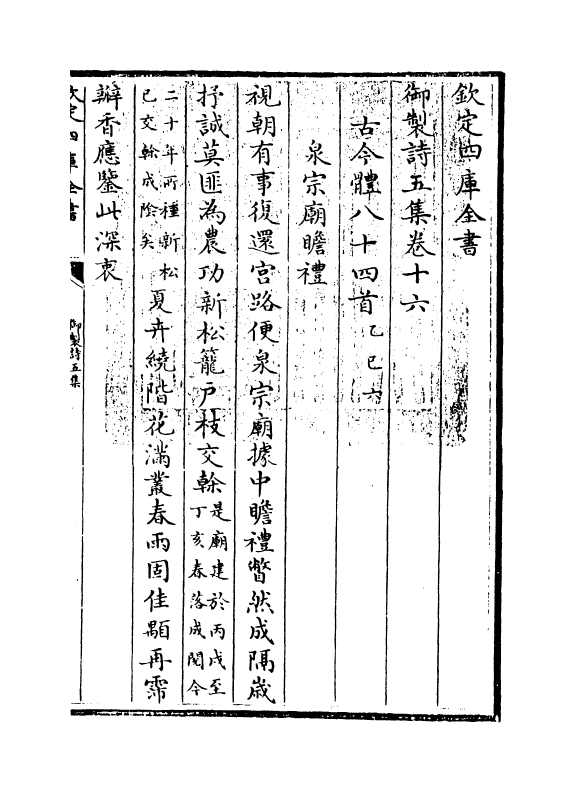 欽定四庫全書
御製詩五集卷十六
古今體八十四首乙巳六
泉宗廟瞻禮
視朝有事復還宫路便泉宗廟據中瞻禮瞥然成隔歲
抒誠莫匪為農功新松籠戶枝交榦是廟建於丙戌至丁亥春落成閱今
二十年所種新松已交榦成陰矣夏卉繞階花滿叢春雨固佳顒再霈
瓣香應鑒此深衷
欽定四庫全書
御製詩五集